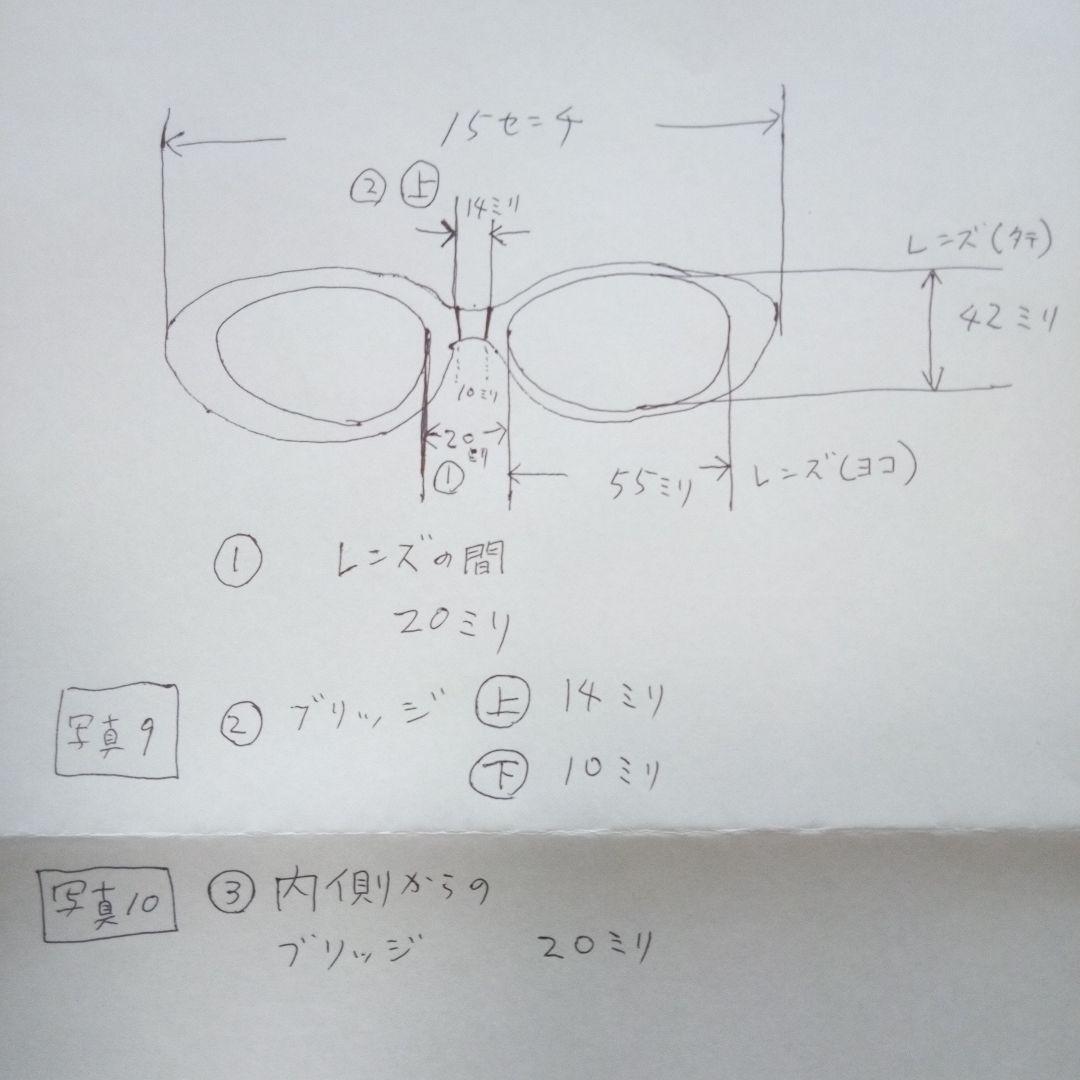 15センチ
② 上
14ミリ
レンズ(タテ)
42ミリ
10ミリ
20
ミリ
①
55ミリ
レンズ(ヨコ)
① レンズの間
20ミリ
写真9 ② ブリッジ 上 14ミリ
下 10ミリ
写真10 ③ 内側からの
ブリッジ 20ミリ